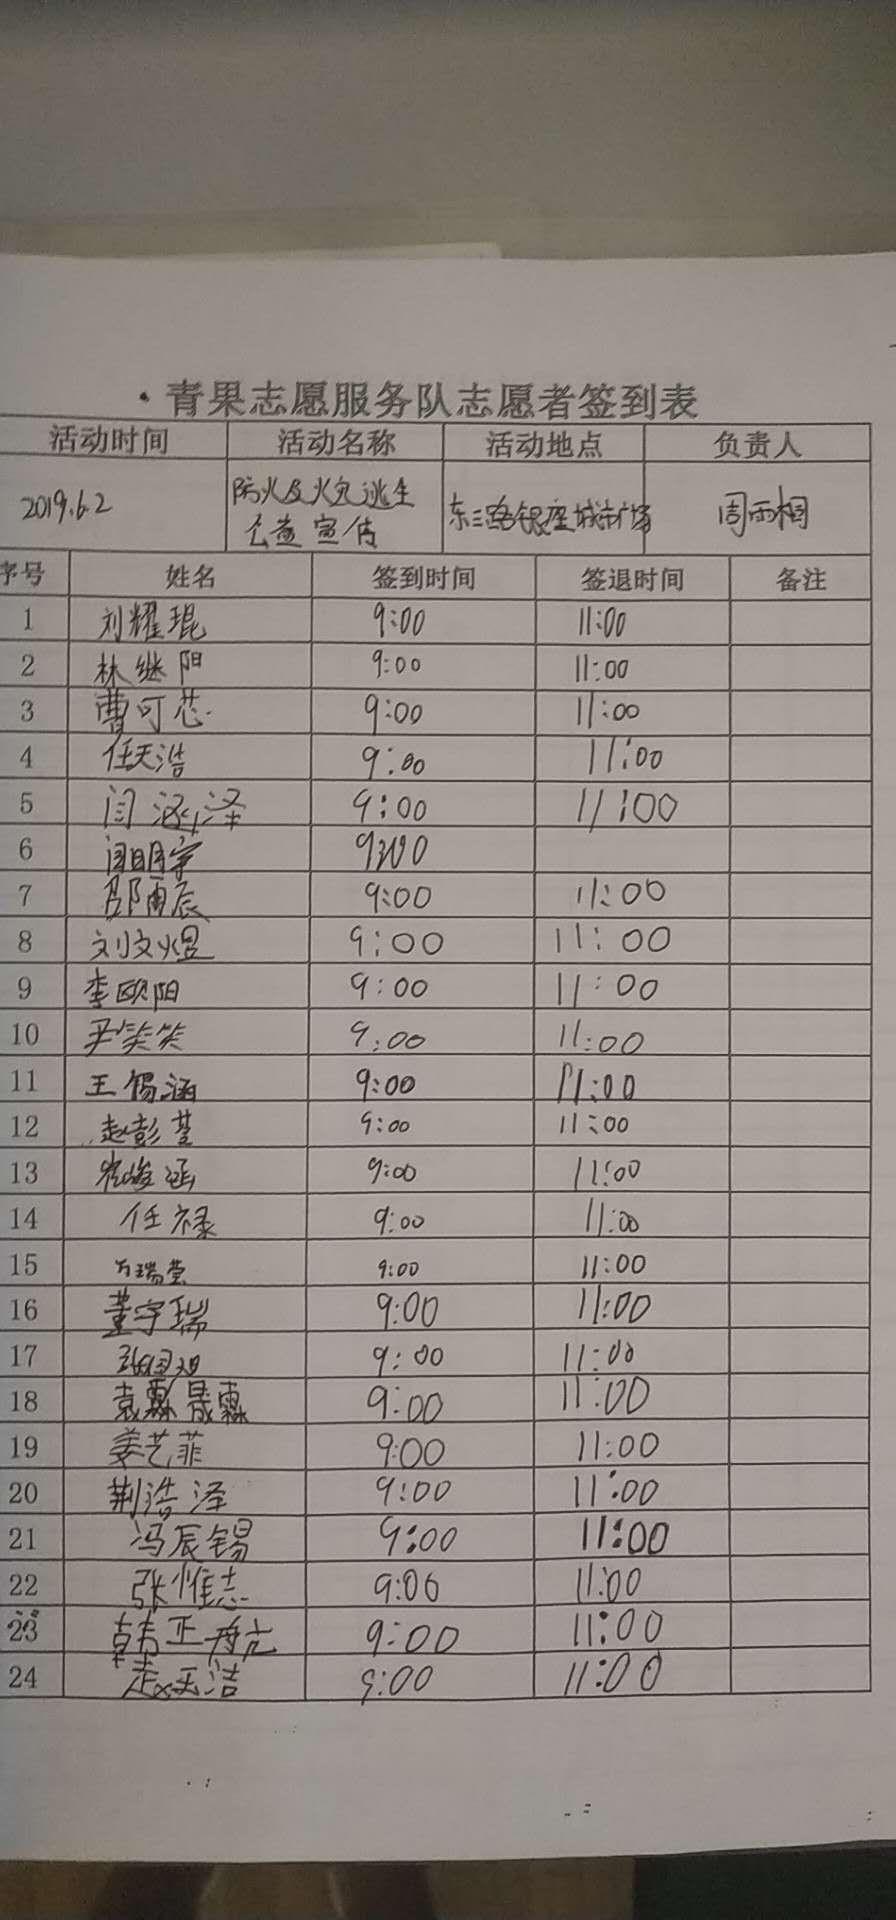 青果志愿服务队志愿者签到表
活动时间 活动名称 活动地点 负责人
2019.6.2 防火及火灾逃生 东三路银座城市广场 周雨桐
公益宣传
序号 姓名 签到时间 签退时间 备注
1 刘耀琨 9:00 11:00
2 林继阳 9:00 11:00
3 曹可芯 9:00 11:00
4 任天浩 9:00 11:00
5 闫涵泽 9:00 11:00
6 闫明宇 9:00
7 邵雨辰 9:00 11:00
8 刘文煜 9:00 11:00
9 李欧阳 9:00 11:00
10 尹笑笑 9:00 11:00
11 王锡涵 9:00 11:00
12 赵彭 9:00 11:00
13 崔峻涵 9:00 11:00
14 任禄 9:00 11:00
15 方瑞莹 9:00 11:00
16 董宇瑞 9:00 11:00
17 9:00 11:00
18 袁霖晟霖 9:00 11:00
19 姜艺菲 9:00 11:00
20 荆浩泽 9:00 11:00
21 冯辰锡 9:00 11:00
22 张惟志 9:00 11:00
23 韩正航 9:00 11:00
24 赵玉洁 9:00 11:00